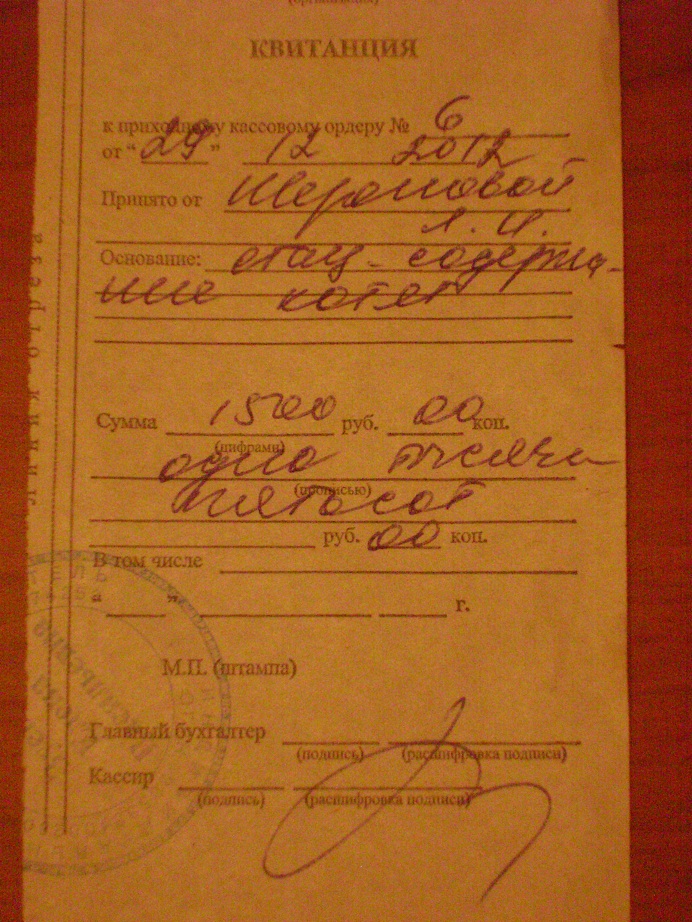 (организация)
КВИТАНЦИЯ
к приходному кассовому ордеру № 6
от "29" 12 2012
Принято от Шерамовой
Л. И.
Основание: стац - содержа-
ние котят
Сумма 1500 руб. 00 коп.
(цифрами)
одна тысяча
(прописью)
пятьсот
руб. 00 коп.
В том числе
" " г.
М.П. (штампа)
Главный бухгалтер
(подпись) (расшифровка подписи)
Кассир
(подпись) (расшифровка подписи)
линия отреза